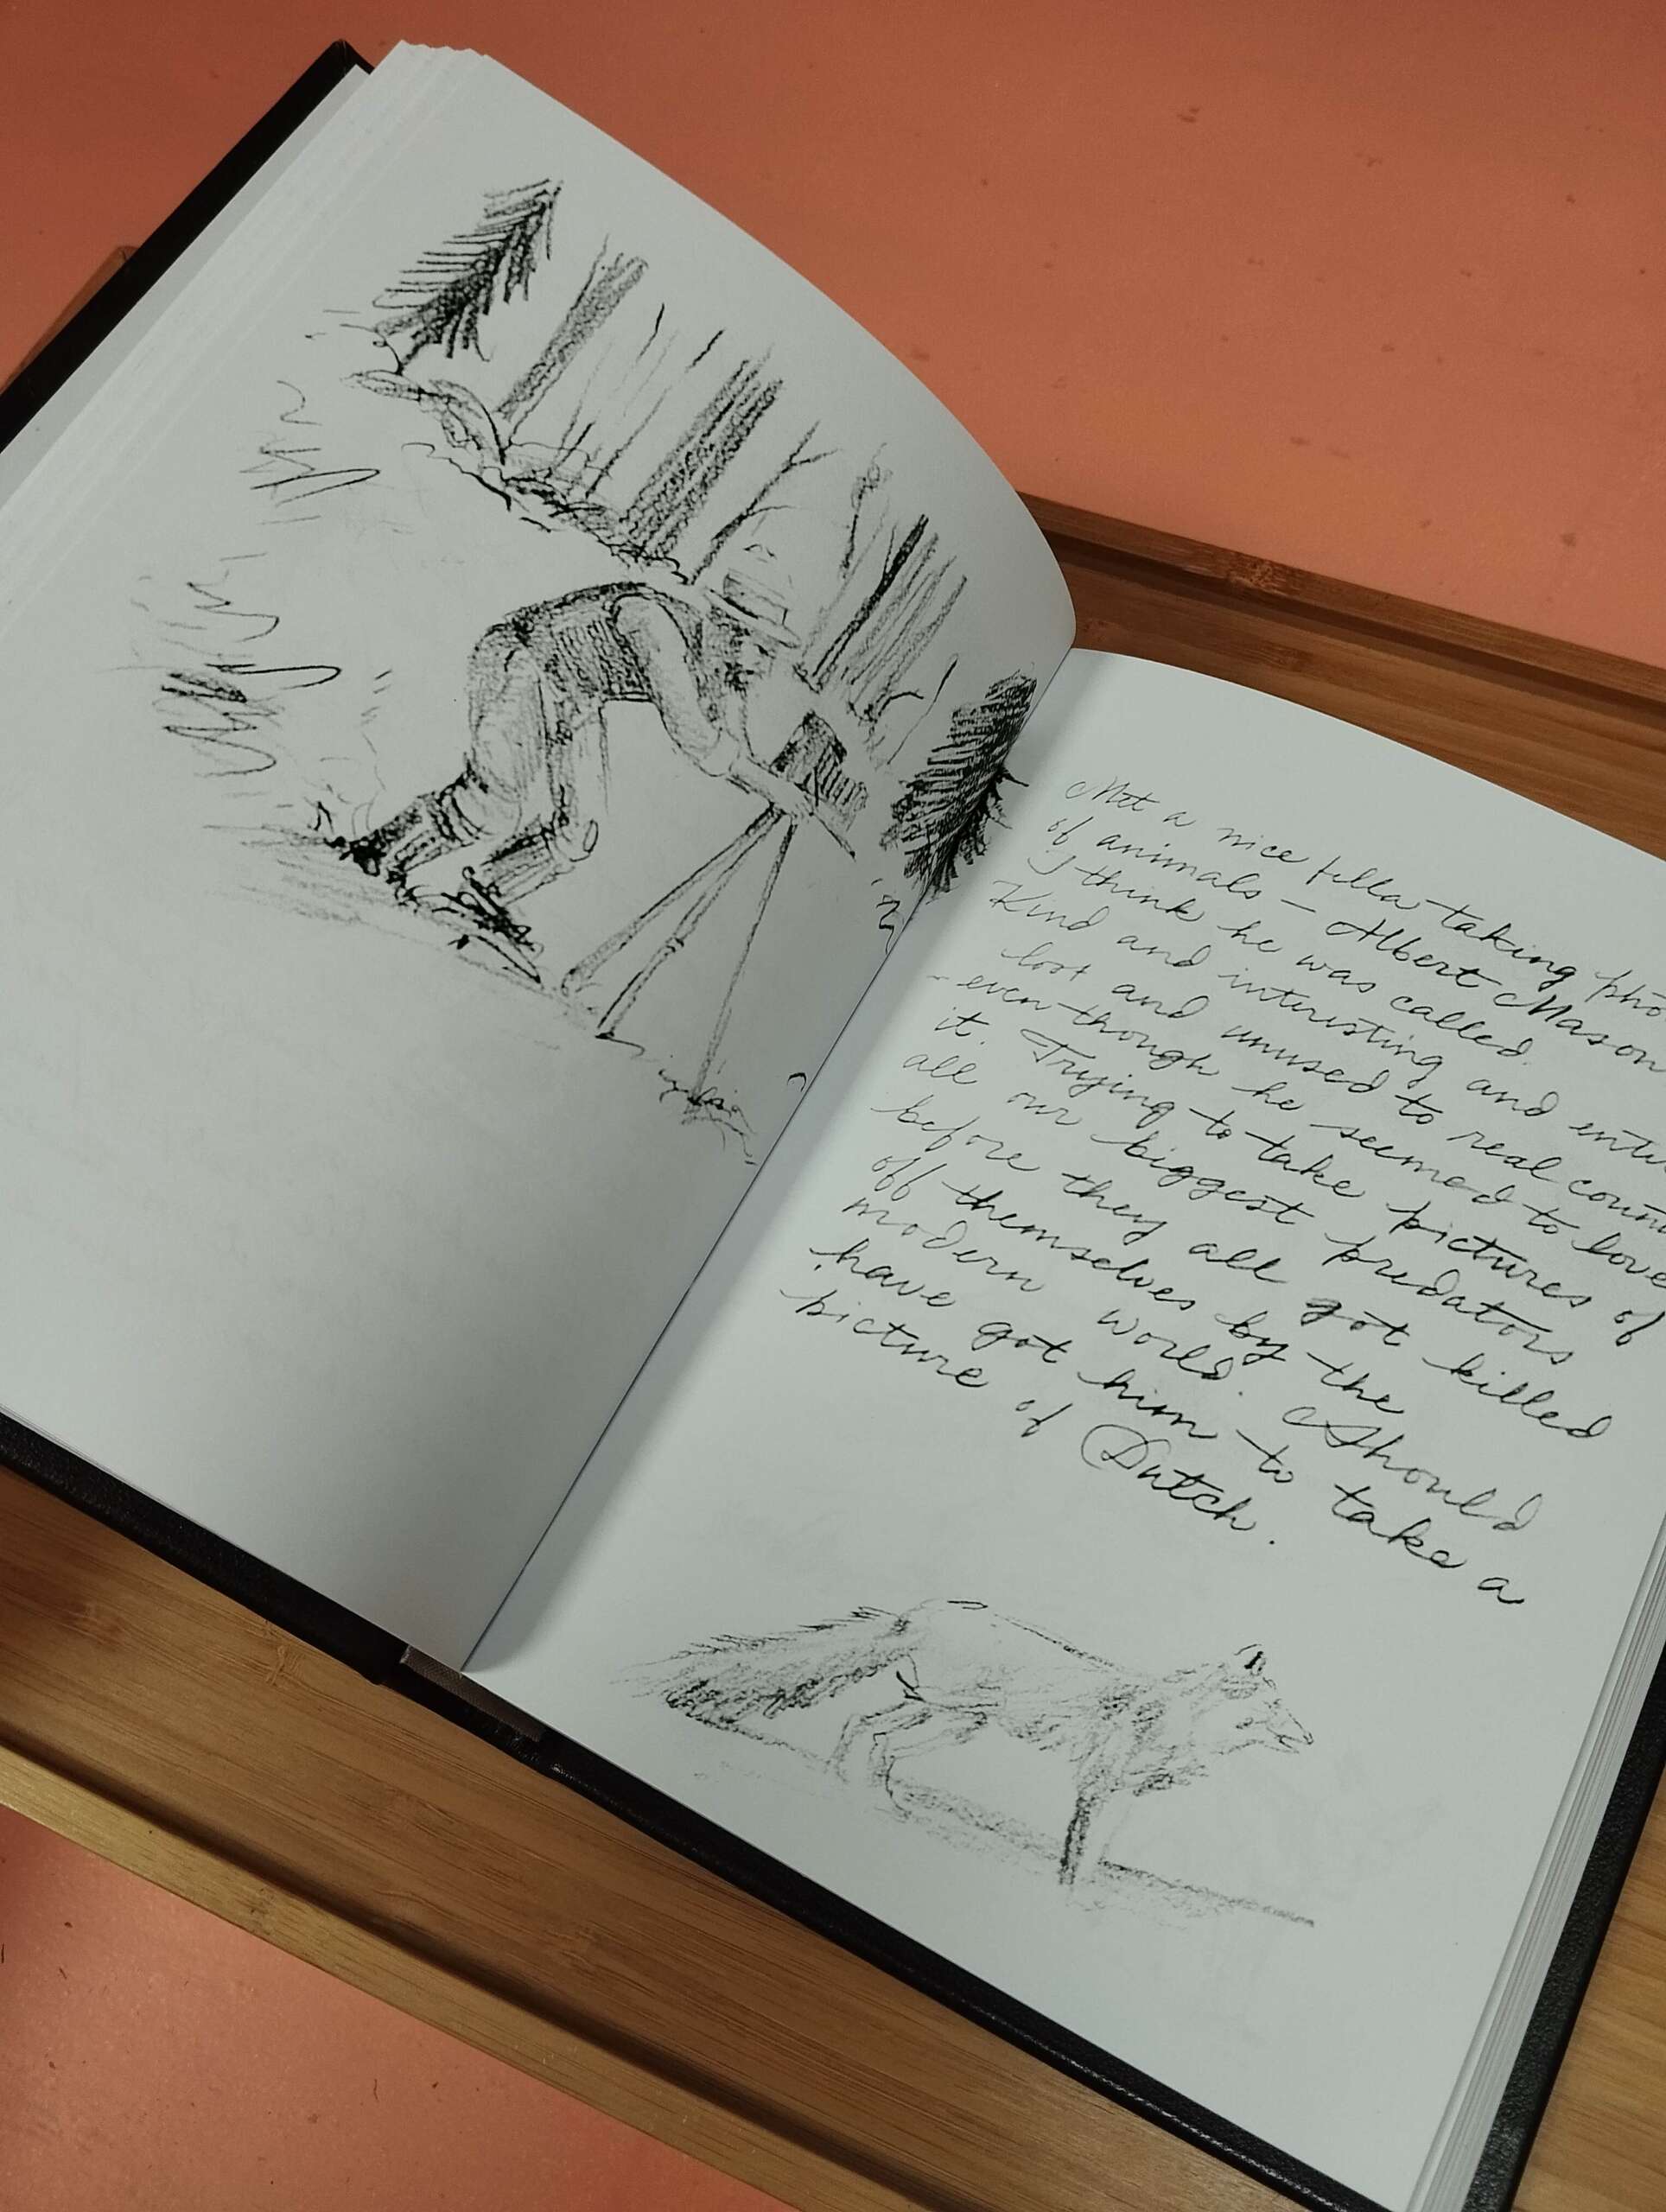 Met a nice fella taking pho
of animals – Albert Mason
I think he was called.
Kind and interesting and enti
lost and unused to real coun
– even though he seemed to love
it. Trying to take pictures of
all our biggest predators
before they all got killed
off themselves by the
modern world. Should
have got him to take a
picture of Dutch.